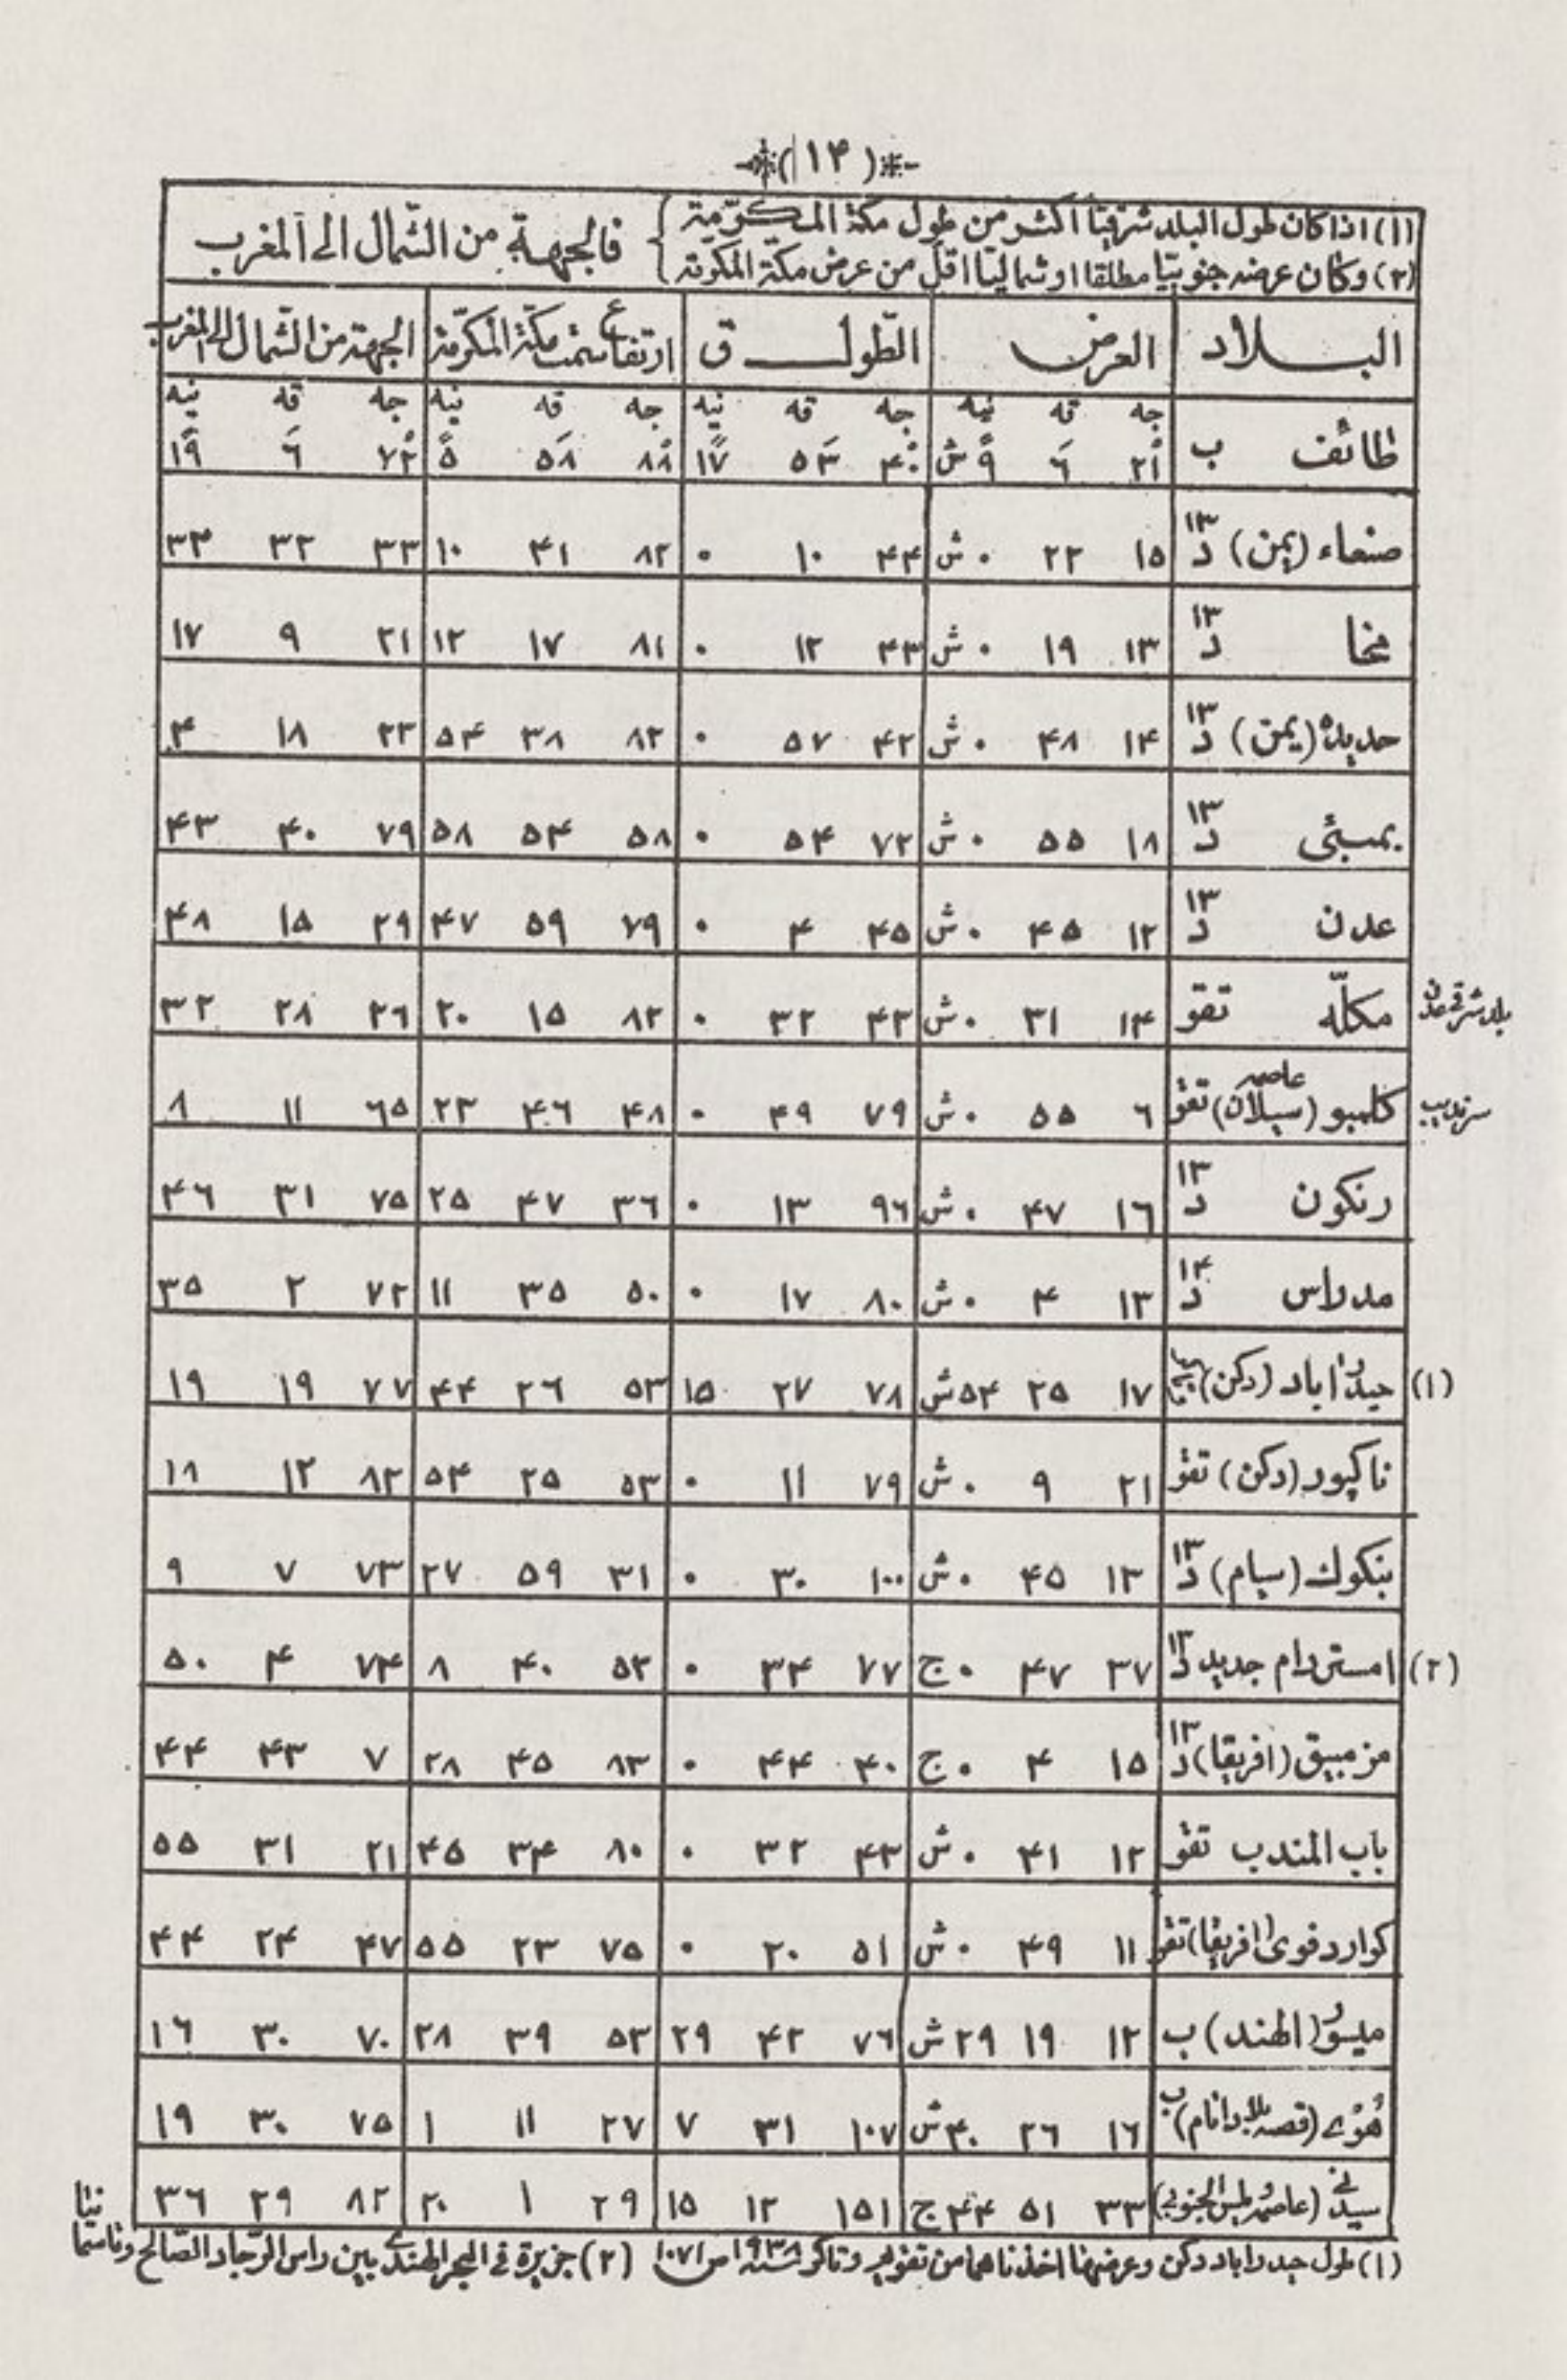 (١٤)
(١) اذا كان طول البلد شرقيّا اكثر من طول مكّة المكرّمة
(٢) وكان عرضه جنوبيّا مطلقا او شماليّا اقلّ من عرض مكّة المكرّمة
فالجهة من الشّمال الى المغرب
البلاد العرض الطّول ق ارتفاع سمت مكّة المكرّمة الجهة من الشّمال الى المغرب
جه قه نيه جه قه نيه جه قه نيه جه قه نيه
طائف ب ٢١ ٦ ٩ ش ٤٠ ٥٣ ١٧ ٨٨ ٥٨ ٥ ٧٢ ٦ ١٩
صنعاء (يمن) د ١٣ ١٥ ٢٢ ٠ ش ٤٤ ١٠ ٠ ٨٢ ٤١ ١٠ ٣٣ ٣٢ ٣٤
مخا د ١٣ ١٣ ١٩ ٠ ش ٤٣ ١٢ ٠ ٨١ ١٧ ١٢ ٢١ ٩ ١٧
حديده (يمن) د ١٣ ١٤ ٤٨ ٠ ش ٤٢ ٥٧ ٠ ٨٢ ٣٨ ٥٤ ٢٣ ١٨ ٤
بمبئى د ١٣ ١٨ ٥٥ ٠ ش ٧٢ ٥٤ ٠ ٥٨ ٥٤ ٥٨ ٧٩ ٤٠ ٤٣
عدن د ١٣ ١٢ ٤٥ ٠ ش ٤٥ ٤ ٠ ٧٩ ٥٩ ٤٧ ٢٩ ١٥ ٤٨
بلد شرقى عدن مكلّه تقو ١٤ ٣١ ٠ ش ٤٣ ٣٢ ٠ ٨٢ ١٥ ٢٠ ٢٦ ٢٨ ٣٢
سرنديب كلمبو (عاصمه سيلان) تقو ٦ ٥٥ ٠ ش ٧٩ ٤٩ ٠ ٤٨ ٤٦ ٢٣ ٦٥ ١١ ٨
رنكون د ١٣ ١٦ ٤٧ ٠ ش ٩٦ ١٣ ٠ ٣٦ ٤٧ ٢٥ ٧٥ ٣١ ٤٦
مدراس د ١٣ ١٣ ٤ ٠ ش ٨٠ ١٧ ٠ ٥٠ ٣٥ ١١ ٧٢ ٢ ٣٥
(١) حيدراباد (دكن) ١٧ ٢٥ ٥٤ ش ٧٨ ٢٧ ١٥ ٥٣ ٢٦ ٤٤ ٧٧ ١٩ ١٩
ناكپور (دكن) تقو ٢١ ٩ ٠ ش ٧٩ ١١ ٠ ٥٣ ٢٥ ٥٤ ٨٢ ١٢ ١٨
بنكوك (سيام) د ١٣ ١٣ ٤٥ ٠ ش ١٠٠ ٣٠ ٠ ٣١ ٥٩ ٢٧ ٧٣ ٧ ٩
(٢) امستردام جديد د ١٣ ٣٧ ٤٧ ٠ ج ٧٧ ٣٤ ٠ ٥٢ ٤٠ ٨ ٧٤ ٤ ٥٠
مزمبيق (افريقا) د ١٣ ١٥ ٤ ٠ ج ٤٠ ٤٤ ٠ ٨٣ ٤٥ ٢٨ ٧ ٤٣ ٤٤
باب المندب تقو ١٢ ٤١ ٠ ش ٤٣ ٣٢ ٠ ٨٠ ٣٤ ٤٥ ٢١ ٣١ ٥٥
كواردفوى (افريقا) تقو ١١ ٤٩ ٠ ش ٥١ ٢٠ ٠ ٧٥ ٢٣ ٥٥ ٤٧ ٢٤ ٤٤
ميسور (الهند) ب ١٢ ١٩ ٢٩ ش ٧٦ ٤٢ ٢٩ ٥٣ ٣٩ ٢٨ ٧٠ ٣٠ ١٦
هوى (قصبه بلاد انام) ب ١٦ ٢٦ ٤٠ ش ١٠٧ ٣١ ٧ ٢٧ ١١ ١ ٧٥ ٣٠ ١٩
سيدنى ٣٣ ٥١ ٤٤ ج ١٥١ ١٢ ١٥ ٢٩ ١ ٢٠ ٨٢ ٢٩ ٣٦
(١) طول حيدراباد دكن وعرضها اخذناهما من تقويم سنه ١٩٣٨ ص ١٠٧١ (٢) جزيرة فى البحر الهندى بين راس الرّجاء الصّالح وتاسمانيا